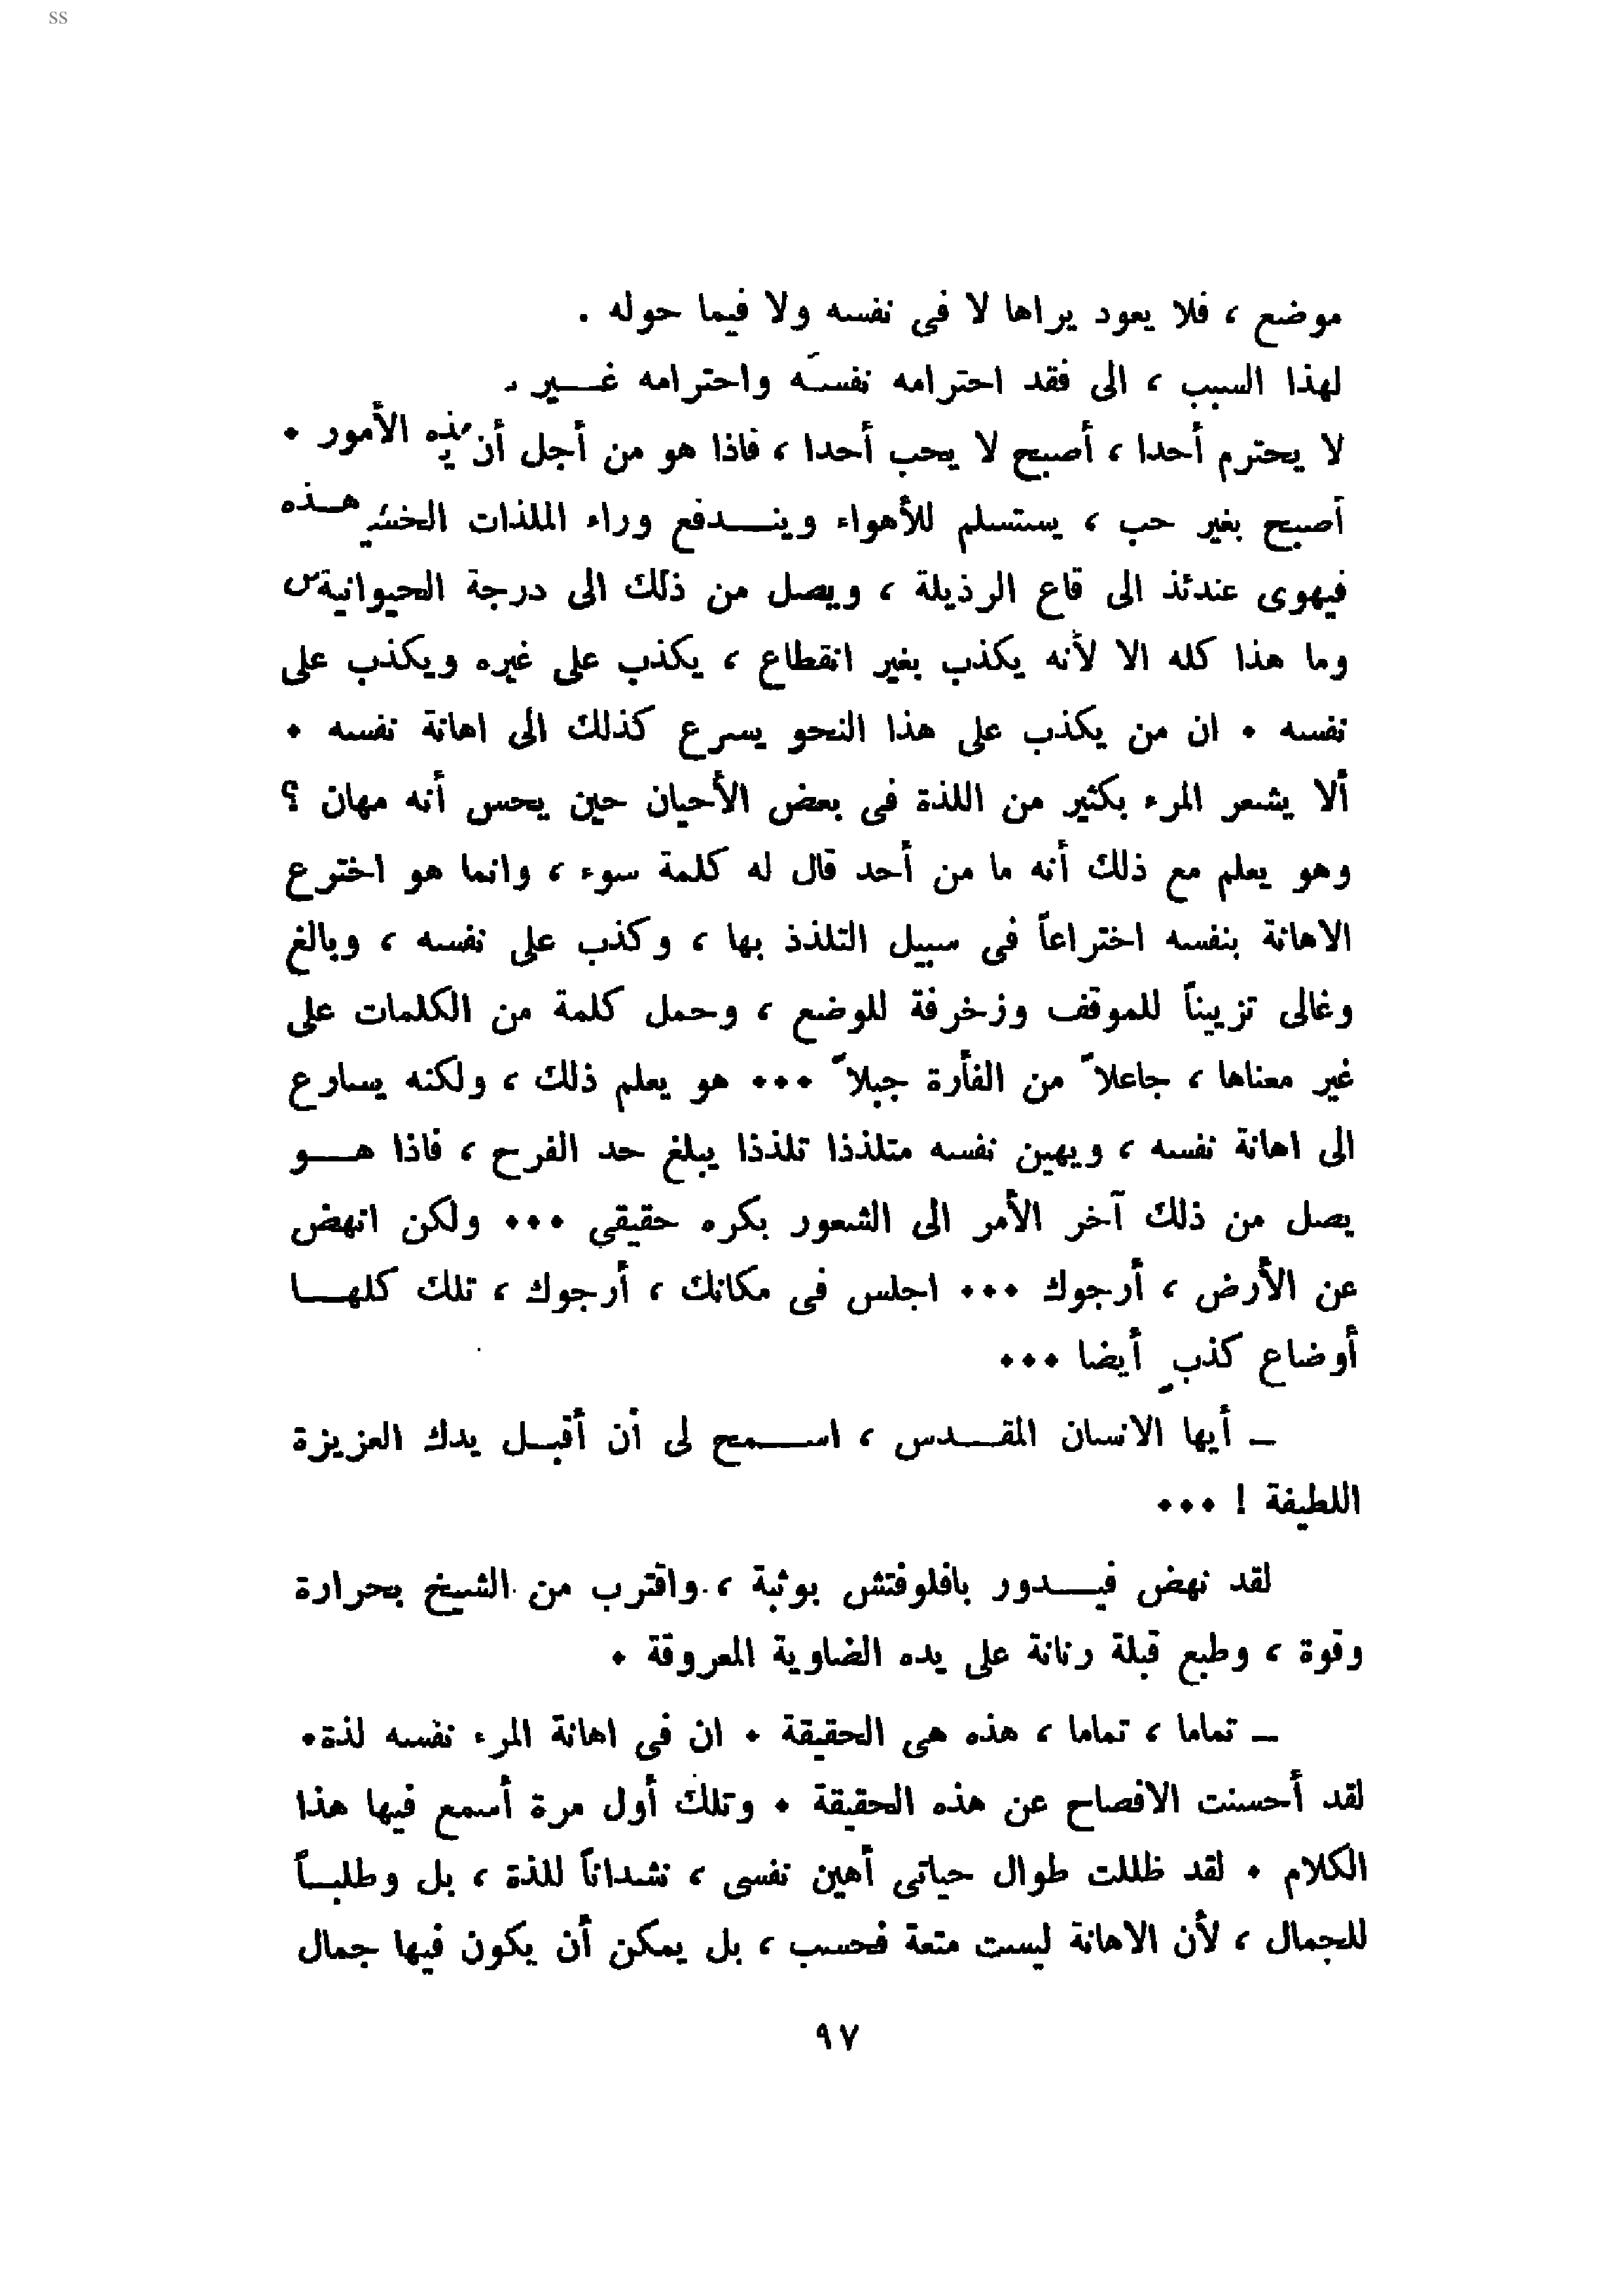 ss
موضع ، فلا يعود يراها لا فى نفسه ولا فيما حوله .
لهذا السبب ، الى فقد احترامه نفسه واحترامه غـــير
لا يحترم أحدا ، أصبح لا يحب أحدا ، فاذا هو من أجل أن الأمور .
أصبح بغير حب ، يستسلم للأهواء وينـــدفع وراء الملذات هـــذه
فيهوى عندئذ الى قاع الرذيلة ، ويصل من ذلك الى درجة الحيوانية
وما هذا كله الا لأنه يكذب بغير انقطاع ، يكذب على غيره ويكذب على
نفسه . ان من يكذب على هذا النحو يسرع كذلك الى اهانة نفسه .
ألا يشعر المرء بكثير من اللذة فى بعض الأحيان حين يحس أنه مهان ؟
وهو يعلم مع ذلك أنه ما من أحد قال له كلمة سوء ، وانما هو اخترع
الاهانة بنفسه اختراعاً فى سبيل التلذذ بها ، وكذب على نفسه ، وبالغ
وغالى تزييناً للموقف وزخرفة للوضع ، وحمل كلمة من الكلمات على
غير معناها ، جاعلاً من الفأرة جبلاً ... هو يعلم ذلك ، ولكنه يسارع
الى اهانة نفسه ، ويهين نفسه متلذذا تلذذا يبلغ حد الفرح ، فاذا هـــو
يصل من ذلك آخر الأمر الى الشعور بكره حقيقى ... ولكن انهض
عن الأرض ، أرجوك ... اجلس فى مكانك ، أرجوك ، تلك كلهـــا
أوضاع كذبٍ أيضا ...
ــ أيها الانسان المقـــدس ، اســـمح لى أن أقبـــل يدك العزيزة
اللطيفة ! ...
لقد نهض فيـــدور بافلوفتش بوثبة ، واقترب من الشيخ بحرارة
وقوة ، وطبع قبلة رنانة على يده الضاوية المعروقة .
ــ تماما ، تماما ، هذه هى الحقيقة . ان فى اهانة المرء نفسه لذة .
لقد أحسنت الافصاح عن هذه الحقيقة . وتلك أول مرة أسمع فيها هذا
الكلام . لقد ظللت طوال حياتى أهين نفسى ، نشداناً للذة ، بل وطلبـــاً
للجمال ، لأن الاهانة ليست متعة فحسب ، بل يمكن أن يكون فيها جمال
٩٧